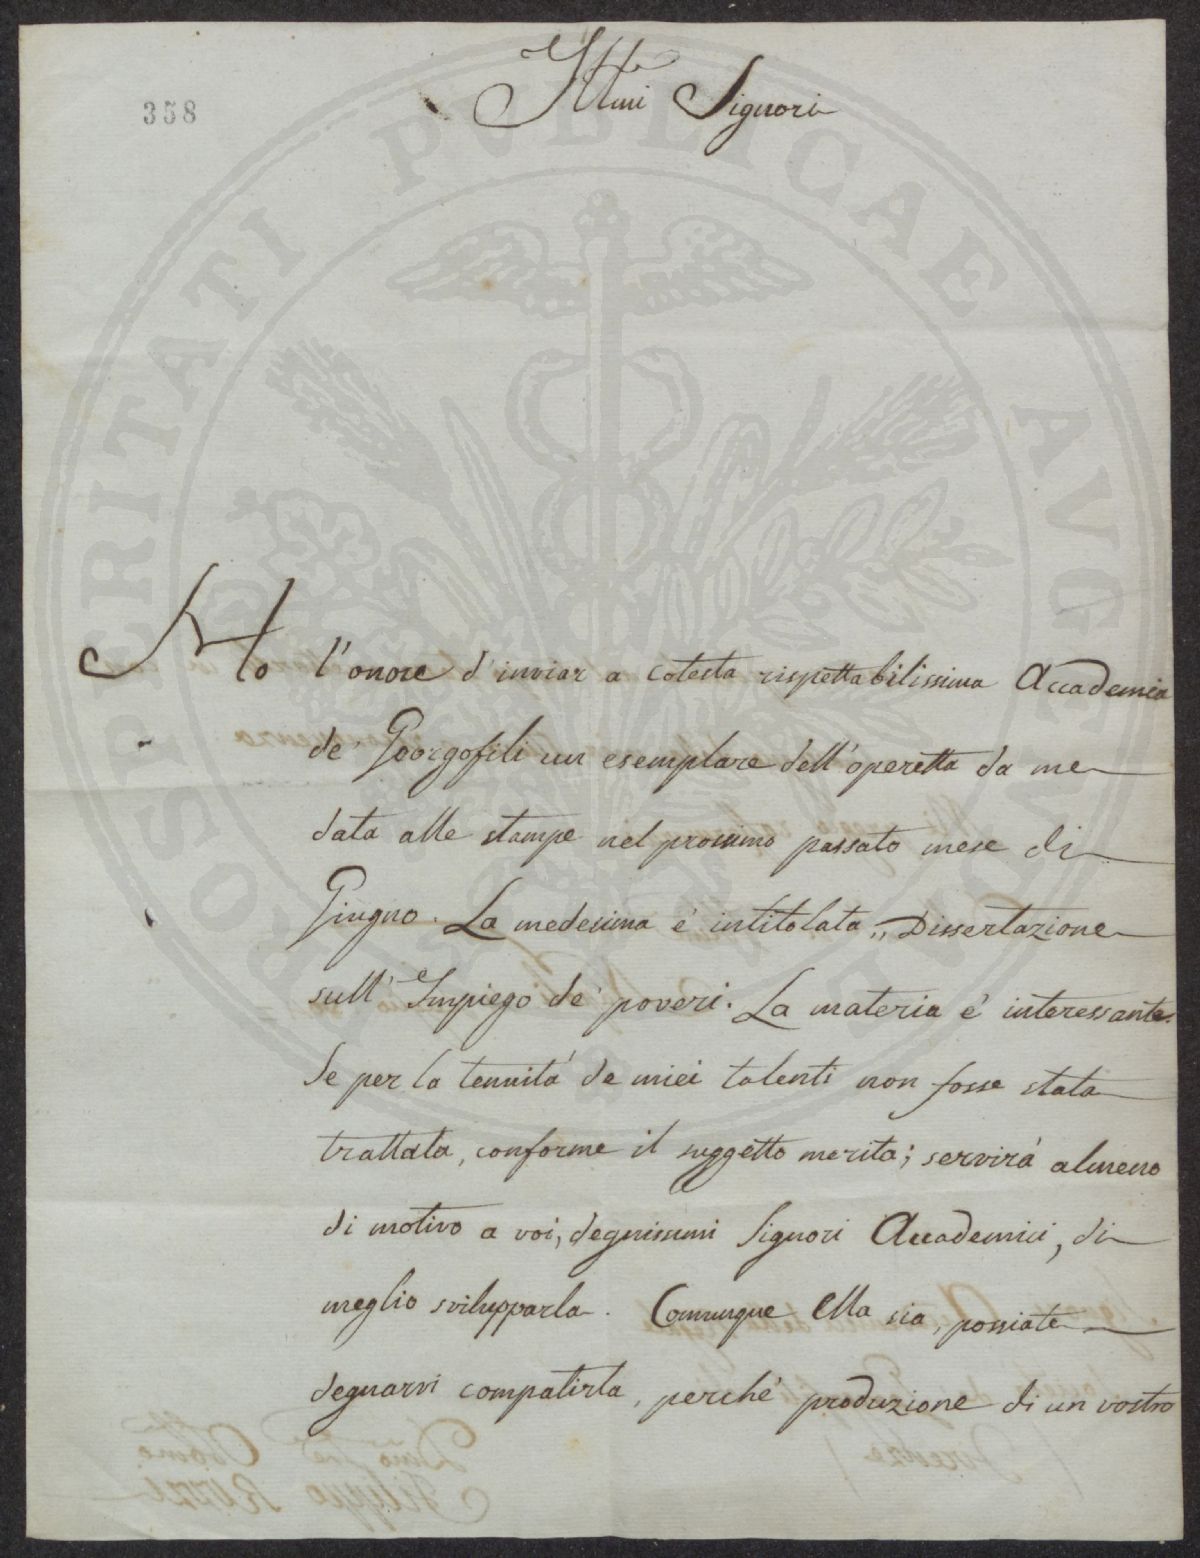 358
Ill:mi Signori
PROSPERITATI PVBLICAE AVGENDAE
Ho l'onore d'inviar a cotesta rispettabilissima Accademia
de' Goorgofili un esemplare dell'operetta da me
data alle stampe nel prossimo passato mese di
Giugno. La medesima è intitolata „ Dissertazione
sull' Impiego de' poveri. La materia è interessante.
Se per la tenuità de miei talenti non fosse stata
trattata, conforme il suggetto merita; servirà almeno
di motivo a voi, degnissimi Signori Accademici, di
meglio svilupparla. Comunque Ella sia, possiate
degnarvi compatirla, perchè produzione di un vostro